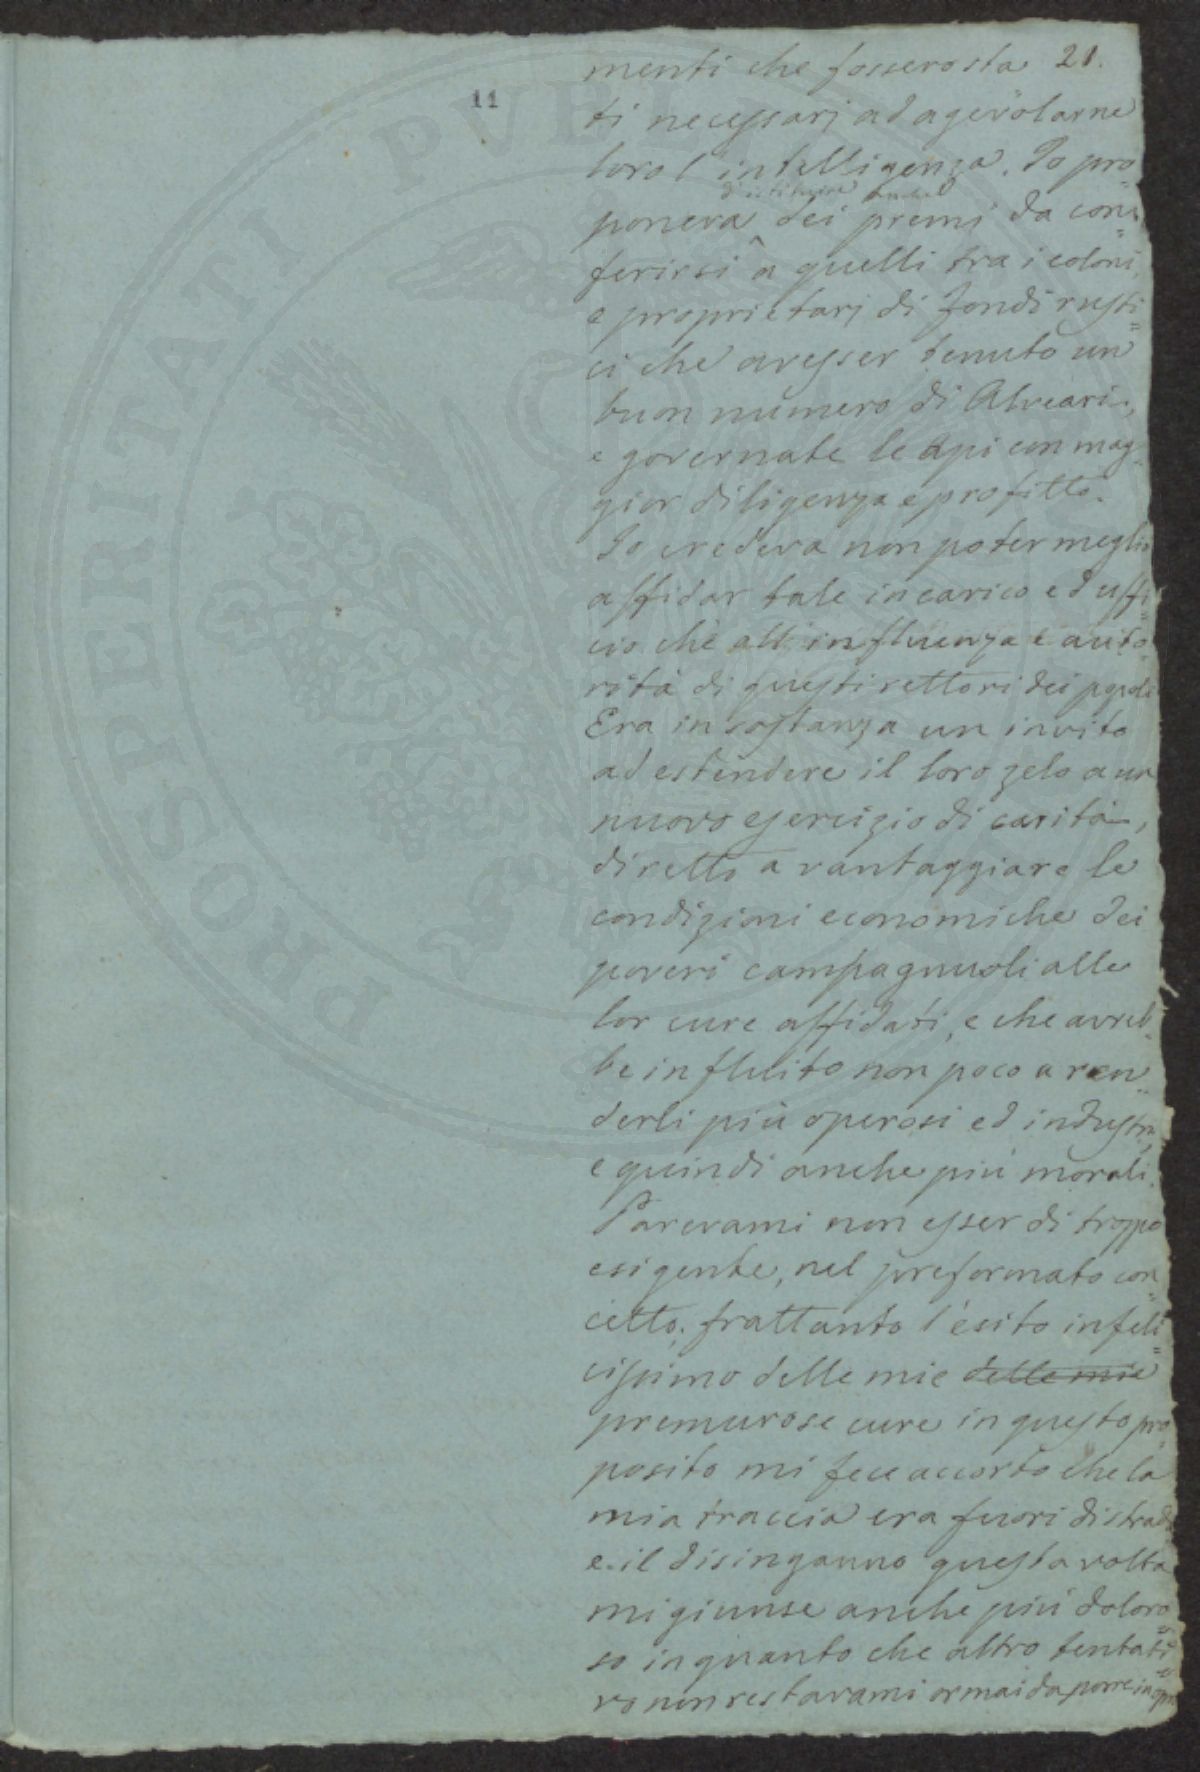 menti che fossero sta 21.
11
ti necessarj ad agevolarne
loro l'intelligenza. Io pro-
d'istituire anche
poneva dei premi da con=
ferirsi a quelli tra i coloni,
e proprietarj di fondi rusti=
ci che avesser tenuto un
buon numero di Alveari,
e governate le Api con mag-
gior diligenza e profitto.
Io credeva non poter meglio
affidar tale incarico ed uffi=
cio che all'influenza e auto=
rità di questi rettori dei popoli
Era in sostanza un invito
ad estendere il loro zelo a un
nuovo esercizio di carità,
diretto a vantaggiare le
condizioni economiche dei
poveri campagnuoli alle
lor cure affidati, e che avreb-
be influito non poco a ren-
derli più operosi ed industri,
e quindi anche più morali.
Parevami non esser di troppo
esigente, nel preformato con=
cetto; frattanto l'esito infeli=
cissimo delle mie delle mie
premurose cure in questo pro
posito mi fece accorto che la
mia traccia era fuori di strada
e il disinganno questa volta
mi giunse anche più doloro=
so in quanto che altro tentati=
vo non restavami ormai da porre in opra
PROSPERITATI PVBLICAE